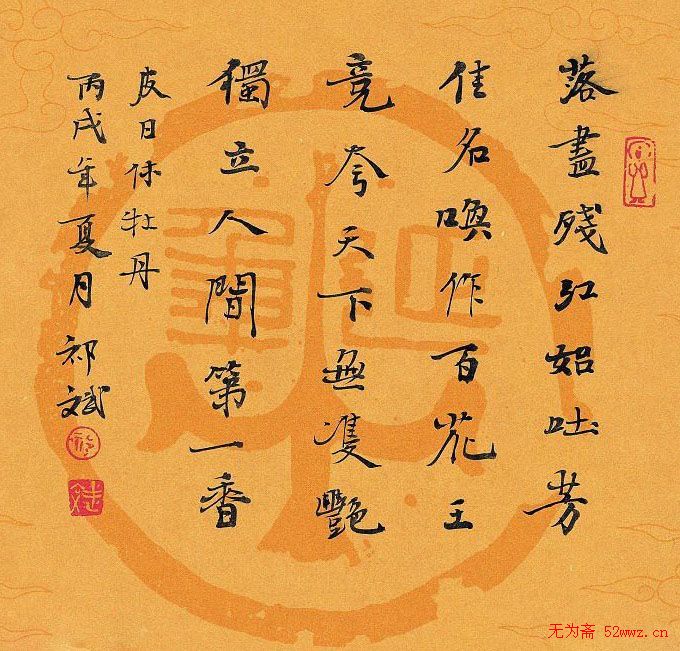 落盡殘紅始吐芳
佳名喚作百花王
竞夸天下無雙艷
獨立人間第一香
皮日休牡丹
丙戌年夏月祁斌
无为斋 52wwz.cn